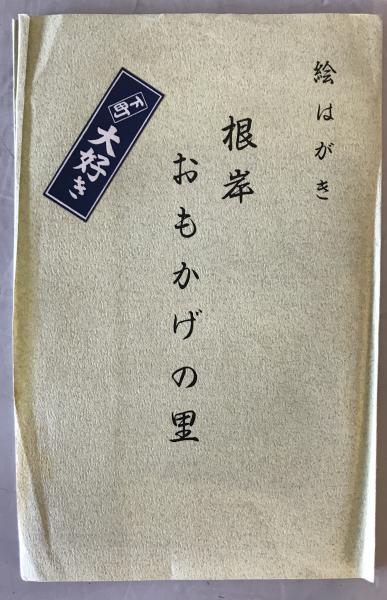 絵はがき
根岸
おもかげの里
下町
大好き